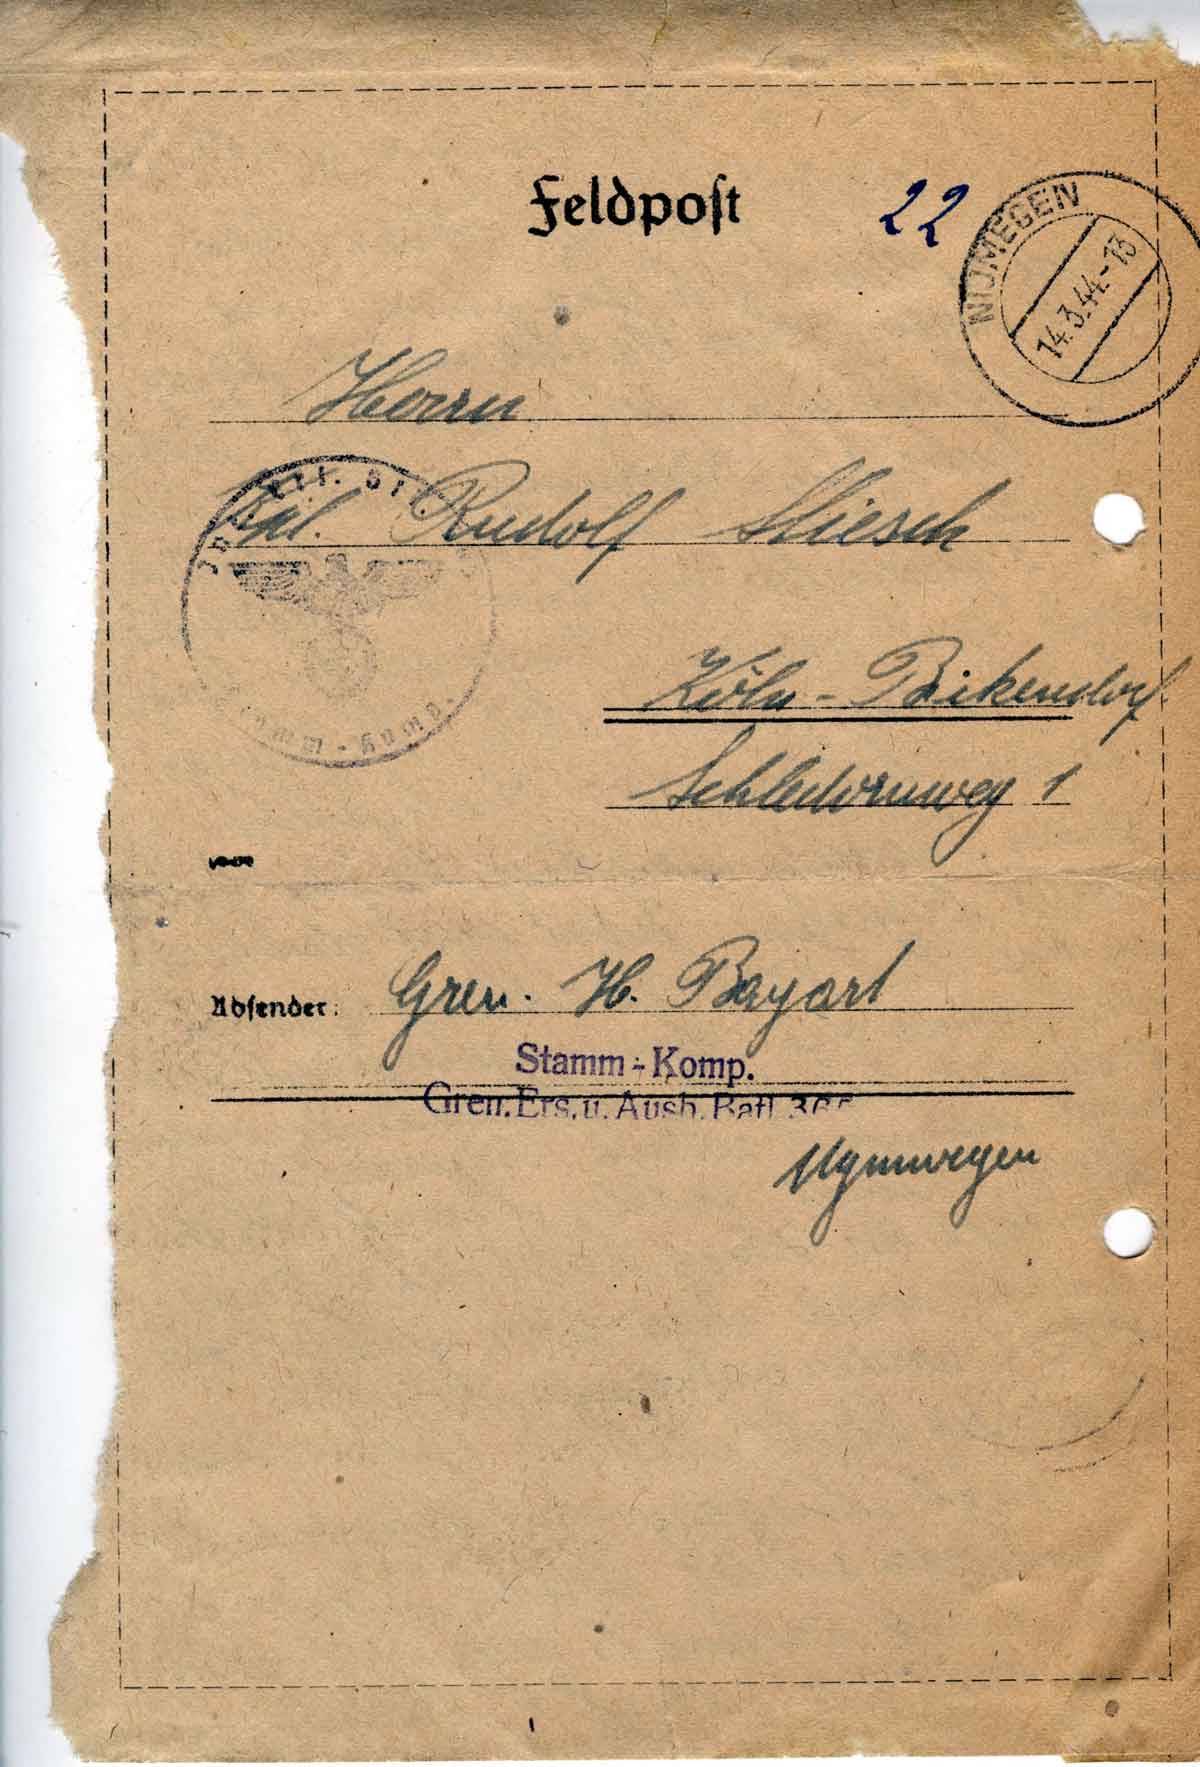 Feldpost
22
NIJMEGEN
14.3.44.-13
Herrn
Rudolf
Köln-Bickendorf
1
Absender: Gren. H. Bayart
Stamm-Komp.
Gren. Ers. u. Ausb. Batl. 365
Nymwegen